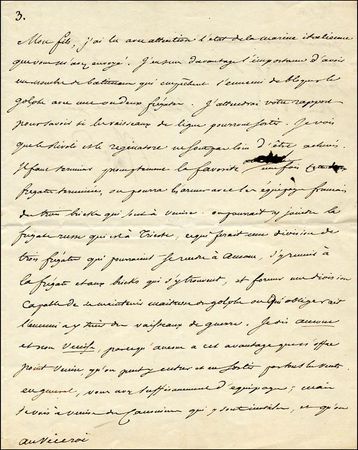 3.
Mon fils, j'ai lu avec attention l'état de la marine italienne
que vous m'avez envoyé. J'ai senti davantage l'importance d'avoir
un nombre de bâtiments qui empêchent l'ennemi de bloquer le
golphe avec une ou deux frégates. J'attendrai votre rapport
pour savoir si les vaisseaux de ligne pourront sortir. Je vois
que le Rivoli et le régénérateur ne sont pas loin d'être achevés.
Il faut terminer promptement la favorite une fois cette
frégate terminée, on pourra l'armer avec les équipages français
de deux bricks qui sont à Venise. on pourrait y joindre la
frégate russe qui est à Trieste, ce qui ferait une division de
trois frégates qui pourraient se rendre à Ancone, s'y réunir à
la frégate et aux bricks qui s'y trouvent, et former une division
capable de se maintenir maîtresse du golphe ou qui obligerait
l'ennemi à y tenir des vaisseaux de guerre. Je dis ancone
et non Venise, parce qu'ancone a cet avantage que n'offre
point Venise qu'on peut y entrer et en sortir par tous les vents
en général, vous avez suffisamment d'équipages; mais
je vois à Venise des canonniers qui y sont inutiles, et qu'on
au Viceroi